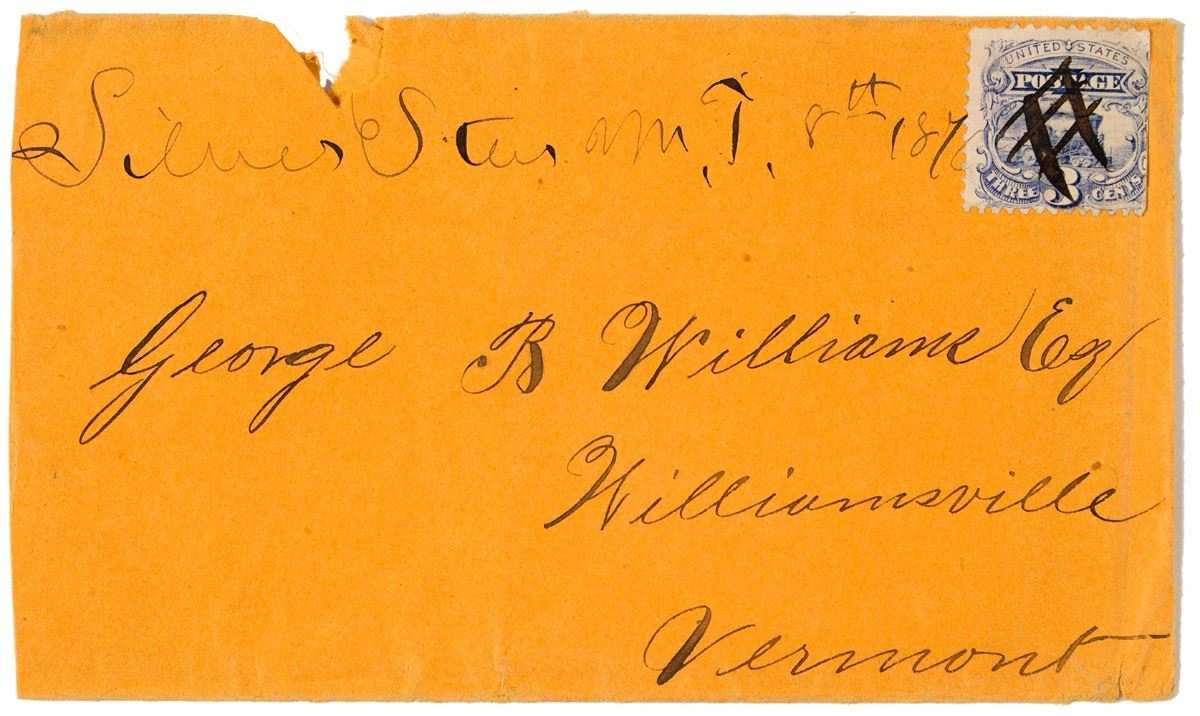 Silver Star M.T. 8th 187
UNITED STATES
POSTAGE
THREE 3 CENTS
George B Williams Esq
Williamsville
Vermont